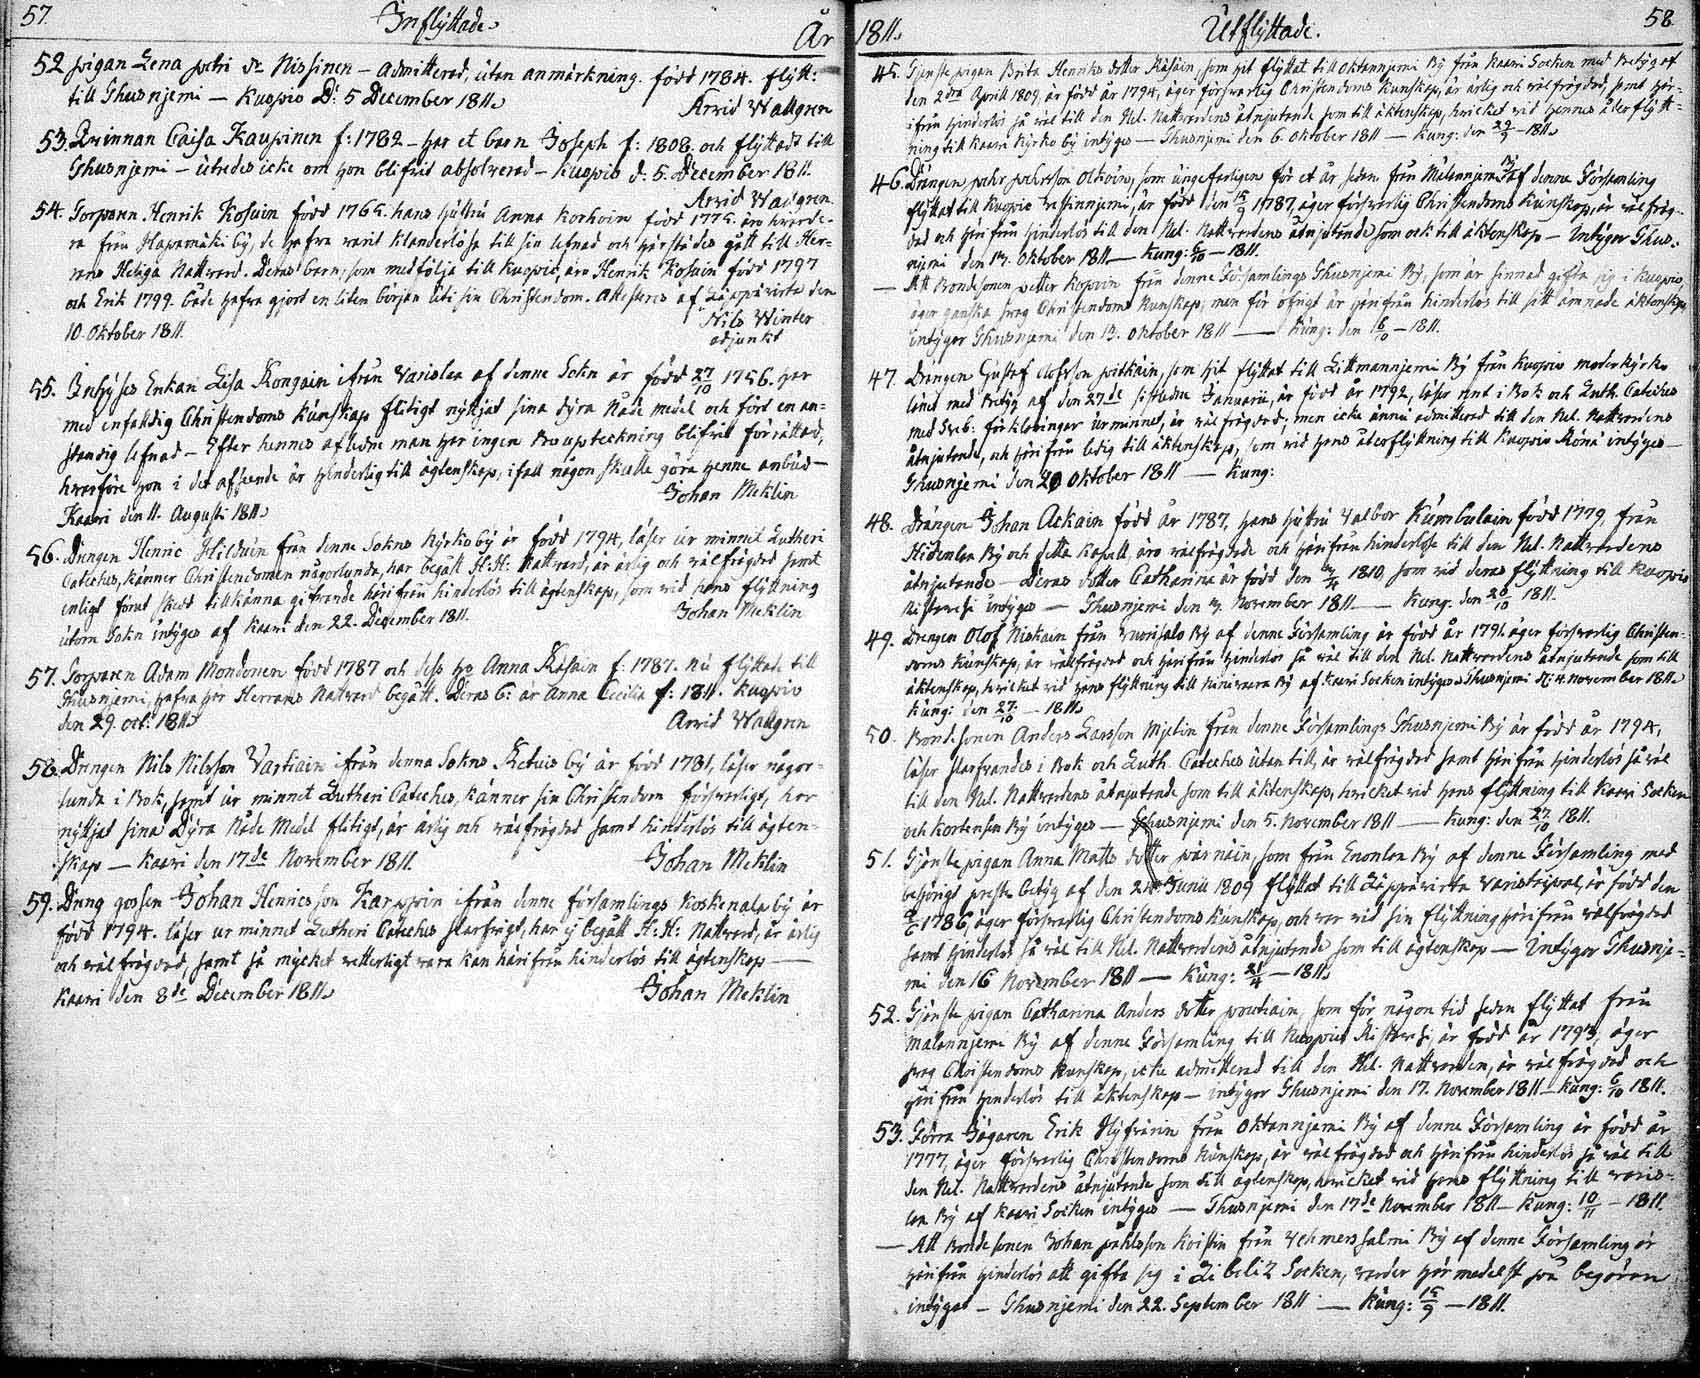 57. Inflÿttade. År
52 pigan Lena petri dr Nissinen – admitterad, utan anmärkning. född 1784. flÿtt:
till Thusnjemi – Kuopio D: 5 December 1811.
Arvid Wallgren
53. Qvinnan Caisa Kaupinen f: 1782 – har et barn Joseph f: 1808. och flÿttadt till
Thusnjemi – utredes icke om hon blifvit absolverad – Kuopio d: 5. December 1811.
Arvid Wallgren
54. Torparen Henrik Kosuin född 1765. hans hustru Anna Korhoin född 1775. äro
ra från Hapamäki bÿ, de hafva varit klanderlösa till sin lefnad och härstädes gått till Her-
rans Heliga Nattvard. Deras barn, som medfölja till Kuopio, äro Henrik Kosuin född 1797
och Erik 1799. både hafva gjort en liten början uti sin Christendom. Attesteras af Läppävirta den
10. Oktober 1811.
Nils Winter
adjunkt
55. Inhÿses Enkan Lisa Rongain ifrån Varislax af denne Sokn är född 27/10 1756. har
med enfaldig Christendoms kunskap flitigt nÿttjat sina dÿra Nåde medel och fört en an-
ständig lefnad – Efter hennes aflidne man har ingen Bouptekning blifvit förrättad,
hvarföre hon i det afseende är hinderlig till ägtenskap, ifall någon skulle göra henne anbud –
Kaavi den 11. Augusti 1811.
Johan Meklin
56. Drängen Henric Hilduin från denne Sokns Kÿrkobÿ är född 1794, läser ur minnet Lutheri
Cateches, känner Christendomen någorlunda, har begått H: H: Nattvard, är ärlig och välfrägdad samt
enligt förut skedt tillkänna gifvande härifrån hinderlös till ägtenskap, som vid hans flÿttning
utom Sokn intÿgas af Kaavi den 22. December 1811.
Johan Meklin
57. Torparen Adam Mondonen född 1787 och dess ho Anna Räsäin f: 1787. nu flÿttade till
Thusnjemi, hafva här Herrans Nattvard begått. Deras b: är Anna Cecilia f: 1811. Kuopio
den 29. oct: 1811.
Arvid Wallgren
58. Drengen Nils Nilsson Vartiain ifrån denna Sokns Retuis bÿ är född 1781, läser någor-
lunda i Bok, samt ur minnet Lutheri Cateches, känner sin Christendom försvarligt, har
nÿttjat sina Dÿra Nåde Medel flitigt, är ärlig och välfrägdad samt hinderlös till ägten-
skap – Kaavi den 17de November 1811.
Johan Meklin
59. Dräng gossen Johan Henricsson Karppin ifrån denne församlings Koskenala bÿ är
född 1794. läser ur minnet Lutheri Cateches, har ej begått H: H: Nattvard, är ärlig
och välfrägdad, samt så mÿcket vetterligt vara kan härifrån hinderlös till ägtenskap –
Kaavi den 8de December 1811.
Johan Meklin
1811. Utflÿttade. 58
45. Tjenste pigan Brita Henriks dotter Räsäin, som hit flÿttat till Oktannjemi Bÿ från Kaavi Socken med Betÿg af
den 2dra Aprill 1809, är född år 1794, äger försvarlig Christendoms kunskap, är ärlig och välfrägdad, samt här-
ifrån hinderlös så väl till den Hel. Nattvardens åtnjutande som till äktenskap, hvilket vid hennes återflÿtt-
ning till Kaavi Kÿrko bÿ intÿgas – Thusnjemi den 6. Oktober 1811 – Kung: den 29/9 – 1811.
46. Drängen pehr pehrsson Olkoin, som ungefärligen för et år sedan från Mälannjemi Bÿ af denne Församling
flÿttat till Kuopio, är född den 15/9 1787, äger försvarlig Christendoms kunskap, är välfräg-
dad och härifrån hinderlös till den Hel. Nattvardens åtnjutande som ock till äktenskap – Intÿgar Thus-
njemi den 13. Oktober 1811 – Kung: 6/10 – 1811.
– Att Bondesonen petter Kopoin från denne Församlings Thusnjemi Bÿ, som är sinnad gifta sig i Kuopio,
äger ganska svag Christendoms kunskap, men för öfrigt är härifrån hinderlös till sitt ämnade äktenskap,
intÿgar Thusnjemi den 13. Oktober 1811 – Kung: den 6/10 – 1811.
47. Drängen Gustaf Olofsson pitkäin, som hit flÿttat till Littmannjemi Bÿ från Kuopio moderkÿrko
länet med Betÿg af den 27de sistledne Januarii, är född år 1792, läser rent i Bok och Luth. Cateches
med Sveb: förklaringar ur minnet, är välfrägdad, men icke ännu admitterad till den Hel. Nattvardens
åtnjutande, och härifrån ledig till äktenskap, som vid hans återflÿttning till Kuopio Rönö intÿgas –
Thusnjemi den 20 Oktober 1811 – Kung:
48. Drängen Johan Ackain född år 1787, hans hustru Valbor Kumbulain född 1779, från
Hidenlax Bÿ och detta Kapell, äro välfrägdade och härifrån hinderlöse till den Hel. Nattvardens
åtnjutande – Deras dotter Catharina är född den 1810, som vid deras flÿttning till Kuopio
Ristvesi intÿgas – Thusnjemi den 3. November 1811 – Kung: den 20/10 1811.
49. Drengen Olof Niskain från Vuorisalo Bÿ af denne Församling är född år 1791, äger försvarlig Christen-
doms kunskap, är välfrägdad och härifrån hinderlös så väl till den Hel. Nattvardens åtnjutande som till
äktenskap, hvilket vid hans flÿttning till Ninivaara Bÿ af Kaavi Socken intÿgas Thusnjemi d: 4. November 1811.
Kung: den 27/10 – 1811.
50. Bondesonen Anders Larsson Mjelin från denne Församlings Thusnjemi Bÿ är född år 1794,
läser i Bok och Luth. Cateches utan till, är välfrägdad samt härifrån hinderlös så väl
till den Hel. Nattvardens åtnjutande som till äktenskap, hvilket vid hans flÿttning till Kaavi Socken
och Kortensen Bÿ intÿgas – Thusnjemi den 5. November 1811 – Kung: den 27/10 1811.
51. Tjenste pigan Anna Matts dotter pärnäin, som från Enonlax Bÿ af denne Församling med
behörigt preste betÿg af den 24. Junii 1809 flÿttat till Läppävirta, är född den
1786, äger försvarlig Christendoms kunskap, och var vid sin flÿttning härifrån välfrägdad
samt hinderlös så väl till Hel. Nattvardens åtnjutande som till ägtenskap – Intÿgar Thusnje-
mi den 16 November 1811 – Kung: 21/4 – 1811.
52. Tjenste pigan Catharina Anders dotter poutiain, som för någon tid sedan flÿttat från
Malannjemi Bÿ af denne Församling till Kuopio Ristvesi, är född år 1793, äger
svag Christendoms kunskap, icke admitterad till den Hel. Nattvarden, är välfrägdad och
härifrån hinderlös till äktenskap – intÿgar Thusnjemi den 17. November 1811 – Kung: 6/10 1811.
53. Förra Jägaren Erik Hÿfvärin från Oktannjemi Bÿ af denne Församling är född år
1777, äger försvarlig Christendoms kunskap, är välfrägdad och härifrån hinderlös så väl till
den Hel. Nattvardens åtnjutande som till ägtenskap, hvilket vid hans flÿttning till Varis-
lax Bÿ af Kaavi Socken intÿgas – Thusnjemi den 17de November 1811 – Kung: 10/11 – 1811.
– Att Bondesonen Johan pahlsson Koistin från Vehmerssalmi Bÿ af denne Församling är
härifrån hinderlös att gifta sig i Libelitz Socken, varder härmedelst på begäran
intÿgat – Thusnjemi den 22. September 1811 – Kung: 15/9 – 1811.